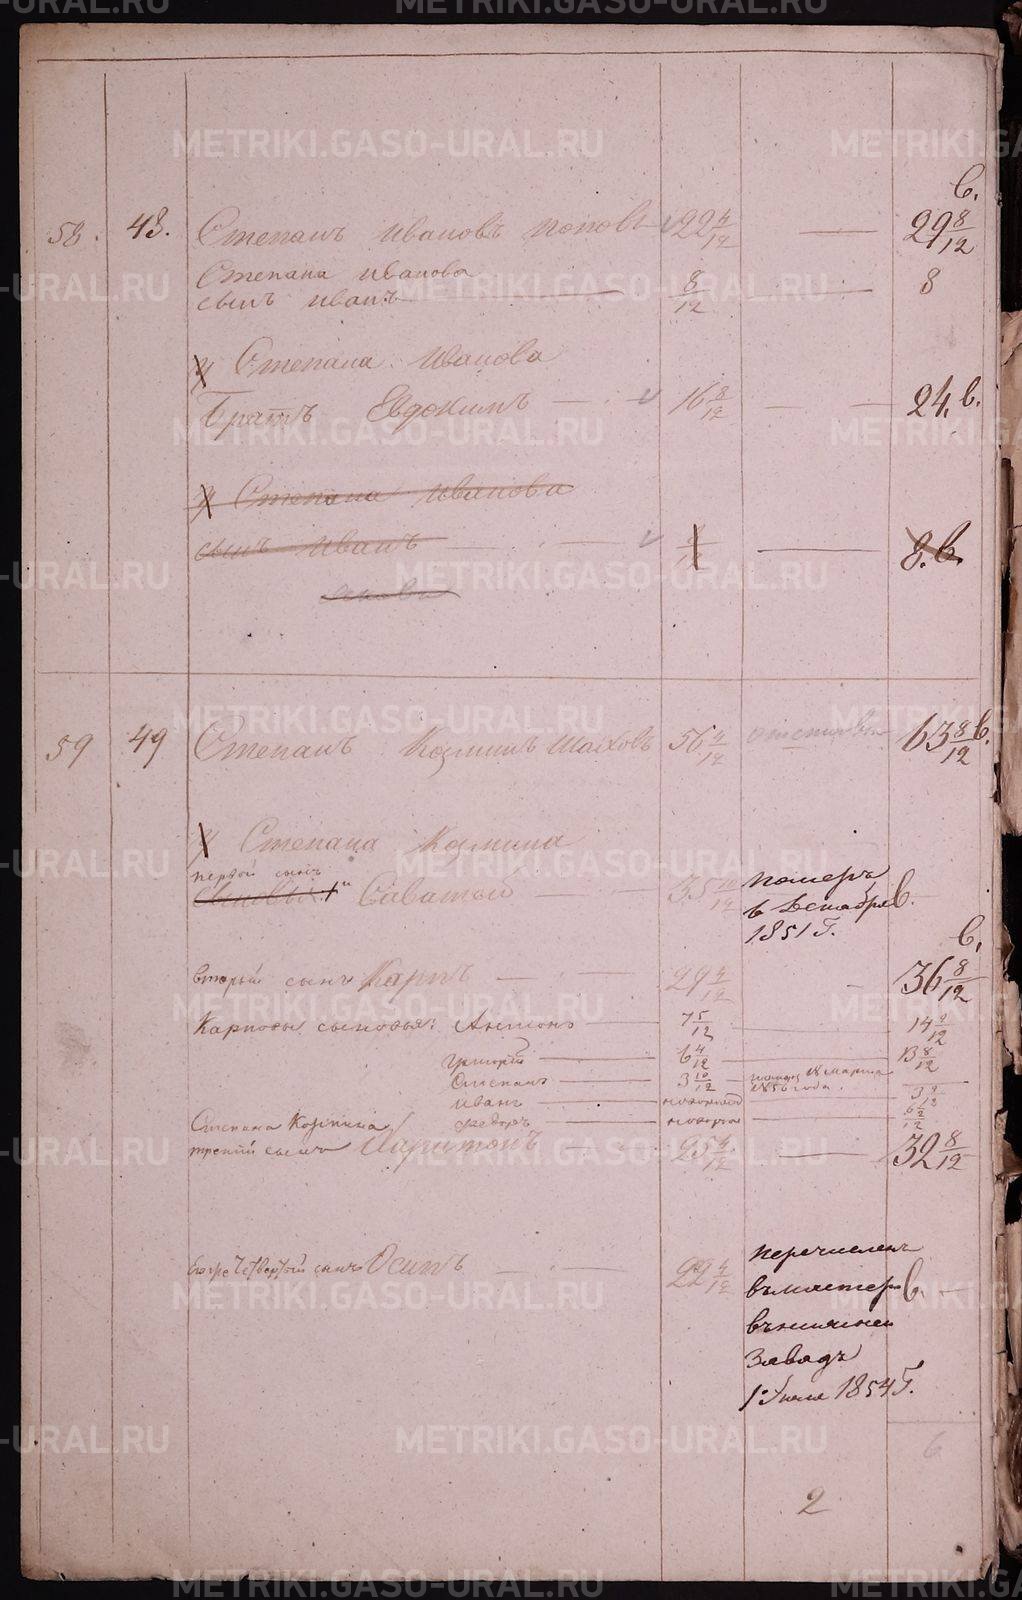 в.
58. 48. Степанъ Ивановъ Поповъ 22 4/12 — 29 8/12
Степана Иванова
сынъ Иванъ 8/12 — 8
у Степана Иванова
Братъ Евдокимъ — 16 8/12 — 24. в.
у Степана Иванова
сынъ Иванъ — 8. в.
59 49 Степанъ Козминъ 56 4/12 63 8/12 в.
у Степана Козмина
первой сынъ
Саватей — 35 10/12 померъ в.
в Декабре
1851 г.
в.
второй сынъ Карпъ — 29 4/12 — 36 8/12
Карповы сыновья: Антонъ — 7 5/12
Григорій — 6 4/12 — 13 8/12
Степанъ — 3 10/12 марта
1856 года.
Иванъ —
Федоръ —
Степана Козмина
третій сынъ Харитонъ — 25 4/12 — 32 8/12
четвертый сынъ Осипъ — 22 4/12 перечисленъ
въ мастер в.
завадъ
1: Июля 1854 г.
6
2
METRIKI.GASO-URAL.RU